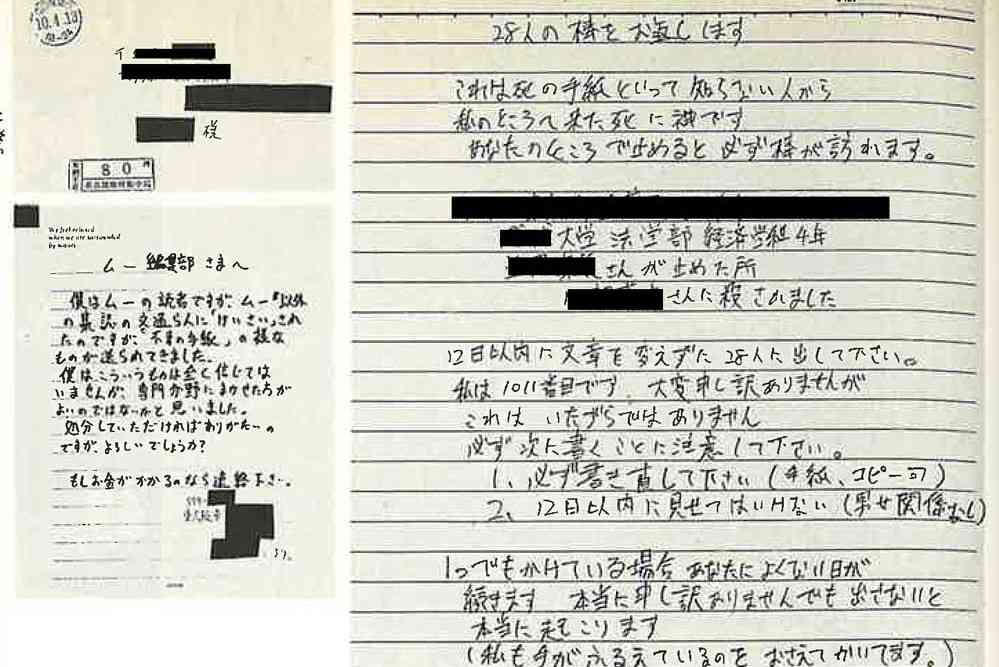 10.4.13
〒
様
80
We feel relaxed
when we are surrounded
by nature
ムー編集部さまへ
僕はムーの読者ですが、ムー以外
の某誌の文通らんに「けいさい」され
たのですが、「不幸の手紙」の様な
ものが送られてきました。
僕はこういうものは全く信じては
いませんが、専門分野にまかせた方が
よいのではないかと思いました。
処分していただければありがたいの
ですが、よろしいでしょうか?
もしお金がかかるのなら連絡下さい。
28人の棒をお返しします
これは死の手紙といって知らない人から
私のところへ来た死に神です
あなたのところで止めると必ず棒が訪れます。
大学 法学部 経済学科4年
さんが止めた所
さんに殺されました
12日以内に文章を変えずに28人に出して下さい。
私は1011番目です。大変申し訳ありませんが
これは いたずらではありません
必ず次に書くことに注意して下さい。
1、必ず書き直して下さい(手紙、コピー可)
2、12日以内に見せてはいけない(男女関係なし)
1つでもかけている場合あなたによくない日が
続きます 本当に申し訳ありませんでも出さないと
本当に起こります
(私も手がふるえているのをおさえてかいてます。)